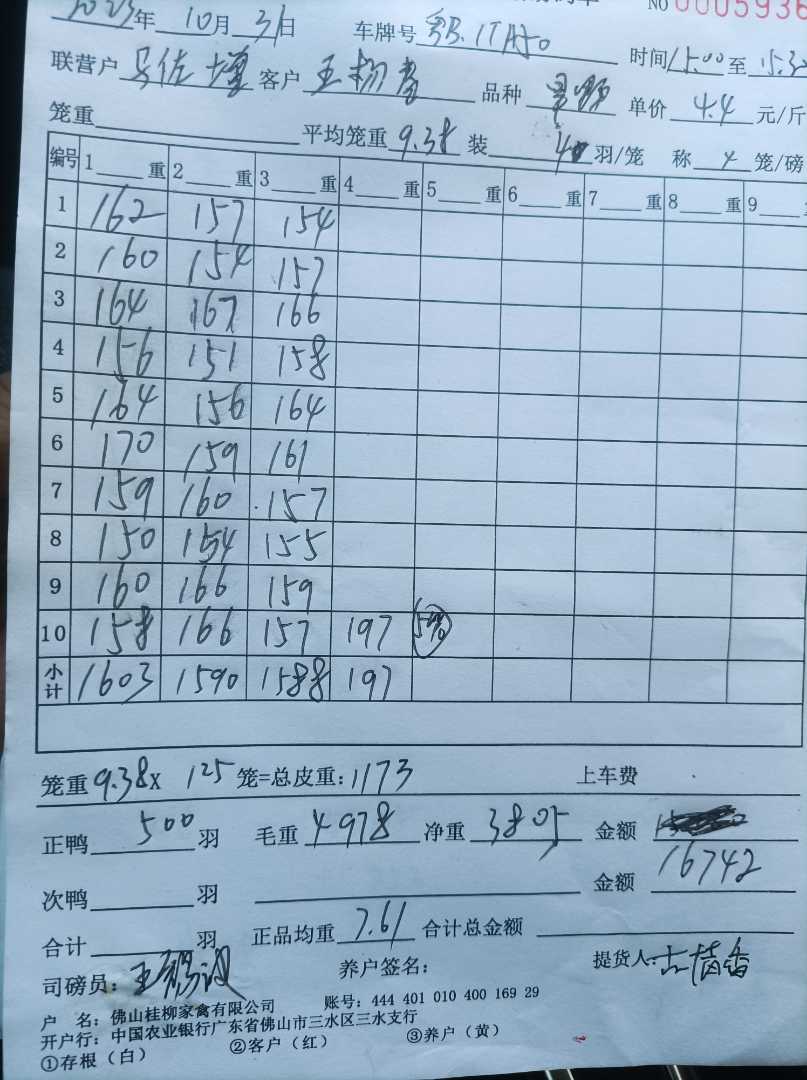 NO 0005936
2023年 10月 31日 车牌号 时间 15.00 至 15.30
联营户 马佐增 客户 王 品种 单价 4.4 元/斤
笼重 平均笼重 9.38 装 4 羽/笼 称 4 笼/磅
编号 1 重 2 重 3 重 4 重 5 重 6 重 7 重 8 重 9
1 162 157 154
2 160 154 157
3 164 167 166
4 156 151 158
5 164 156 164
6 170 159 161
7 159 160 157
8 150 154 155
9 160 166 159
10 158 166 157 197
小计 1603 1590 1588 197
笼重 9.38 x 125 笼=总皮重: 1173 上车费
正鸭 500 羽 毛重 4978 净重 3805 金额
次鸭 羽 金额 16742
合计 羽 正品均重 7.61 合计总金额
司磅员: 王 养户签名: 提货人:
户 名: 佛山桂柳家禽有限公司 账号: 444 401 010 400 169 29
开户行: 中国农业银行广东省佛山市三水区三水支行
①存根（白） ②客户（红） ③养户（黄）